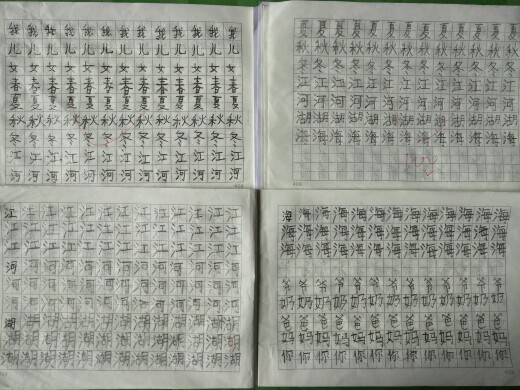 我我我我我我我我我我我我
儿儿儿儿儿儿儿儿儿儿儿儿
女女女女女女女女女女女女
春春春春春春春春春春春春
夏夏夏夏夏夏夏夏夏夏夏夏
秋秋秋秋秋秋秋秋秋秋秋秋
冬冬冬冬冬冬冬冬冬冬冬冬
江江江江江江江江江江江江
河河河河河河河河河河河河
夏夏夏夏夏夏夏夏夏夏
秋秋秋秋秋秋秋秋秋秋
冬冬冬冬冬冬冬冬冬冬
江江江江江江江江江江
河河河河河河河河河河
湖湖湖湖湖湖湖湖湖湖
海海海海海海海海海海
江江江江江江江江江江江江
江江江江江江江江江江江江
江江江江江江江江江江江江
河河河河河河河河河河河河
河河河河河河河河河河河河
河河河河河河河河河河河河
湖湖湖湖湖湖湖湖湖湖湖湖
湖湖湖湖湖湖湖湖湖湖湖湖
湖湖湖湖湖湖湖湖湖湖湖湖
海海海海海海海海海海海海
海海海海海海海海海海海海
海海海海海海海海海海海海
爷爷爷爷爷爷爷爷爷爷爷爷
奶奶奶奶奶奶奶奶奶奶奶奶
爸爸爸爸爸爸爸爸爸爸爸爸
妈妈妈妈妈妈妈妈妈妈妈妈
你你你你你你你你你你你你